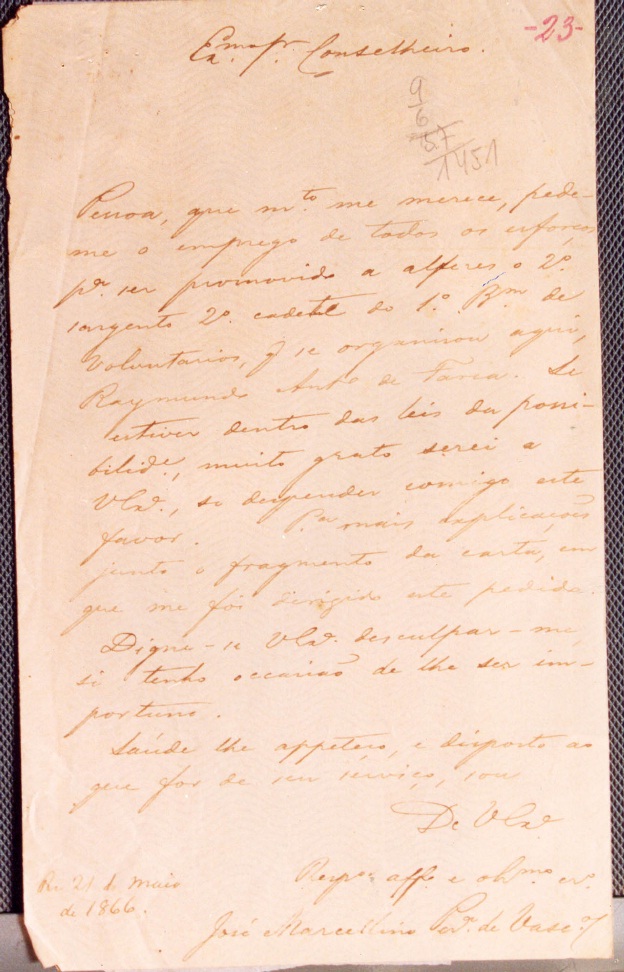 -23-
Exmo. Sr. Conselheiro.
9
6
57
1451
Pessoa, que mto. me merece, pede-
me o emprego de todos os esforços
pa. ser promovido a alferes o 2º.
sargento 2º. cadete do 1º. Bm. de
Voluntarios, q se organisou aqui,
Raymundo Anto. de Faria. Se
estiver dentro das leis da possi-
bilide., muito grato serei a
V Exa., se despender comigo este
favor. Pa. mais explicações
junto o fragmento da carta, em
que me foi dirigido este pedido.
Digne-se V Exa. desculpar-me,
si tenho occasião de lhe ser im-
portuno.
Saúde lhe appeteço, e disposto ao
que for de seu serviço, sou
De V Exa.
Respor. affo. e obrmo. cr.
Rio 21 de Maio
de 1866.
José Marcellino Pera. de Vascos.